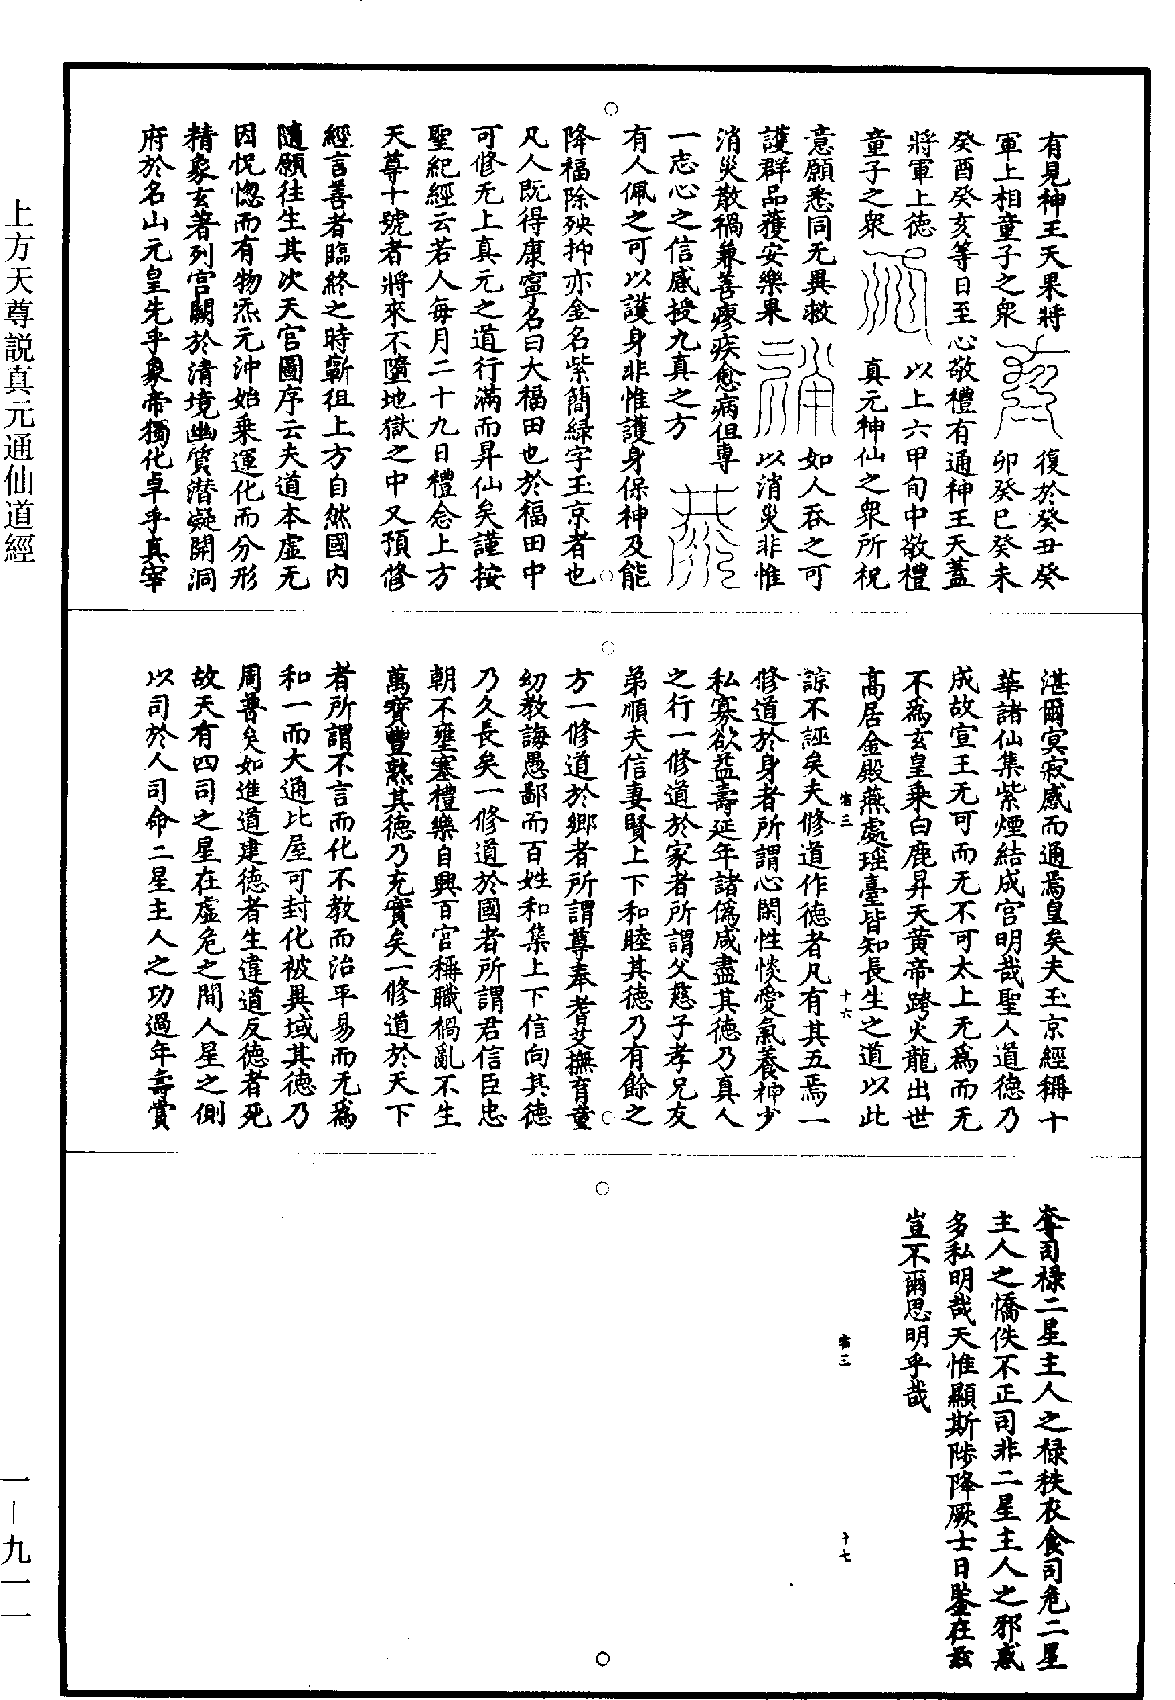 有見神王天果將
軍上相童子之衆
癸酉癸亥等日至心敬禮有通神王天蓋
將軍上德
童子之衆
復於癸丑癸
卯癸巳癸未
以上六甲旬中敬禮
真元神仙之衆所祝
意願悉同无異救
護群品獲安樂果
消災散禍兼善瘳疾愈病但專
一志心之信感授九真之方
有人佩之可以護身非惟護身保神及能
如人吞之可
以消災非惟
降福除殃抑亦金名紫簡綠字玉京者也
凡人既得康寧名曰大福田也於福田中
可修无上真元之道行滿而昇仙矣謹按
聖紀經云若人每月二十九日禮念上方
天尊十號者將來不墮地獄之中又預修
經言善者臨終之時斬徂上方自然國內
隨願往生其次天宮圖序云夫道本虛无
因怳惚而有物炁元沖始乘運化而分形
精象玄著列宮闕於清境幽質潛凝開洞
府於名山元皇先乎象帝獨化卓乎真宰
湛爾冥寂感而通焉皇矣夫玉京經稱十
華諸仙集紫煙結成宮明哉聖人道德乃
成故宣王无可而无不可太上无為而无
不為玄皇乘白鹿昇天黃帝跨火龍出世
高居金殿燕處瑤臺皆知長生之道以此
宿三
十六
諒不誣矣夫修道作德者凡有其五焉一
修道於身者所謂心閑性惔愛氣養神少
私寡欲益壽延年諸偽咸盡其德乃真人
之行一修道於家者所謂父慈子孝兄友
弟順夫信妻賢上下和睦其德乃有餘之
方一修道於鄉者所謂尊奉耆艾撫育童
幼教誨愚鄙而百姓和集上下信向其德
乃久長矣一修道於國者所謂君信臣忠
朝不壅塞禮樂自興百官稱職禍亂不生
萬寶豐熟其德乃充實矣一修道於天下
者所謂不言而化不教而治平易而无為
和一而大通比屋可封化被異域其德乃
周普矣如進道建德者生違道反德者死
故天有四司之星在虛危之間人星之側
以司於人司命二星主人之功過年壽賞
奪司祿二星主人之祿秩衣食司危二星
主人之憍佚不正司非二星主人之邪惑
多私明哉天惟顯斯陟降厥士日鑒在茲
豈不爾思明乎哉
宿三
十七
上方天尊説真元通仙道經
一—九一一